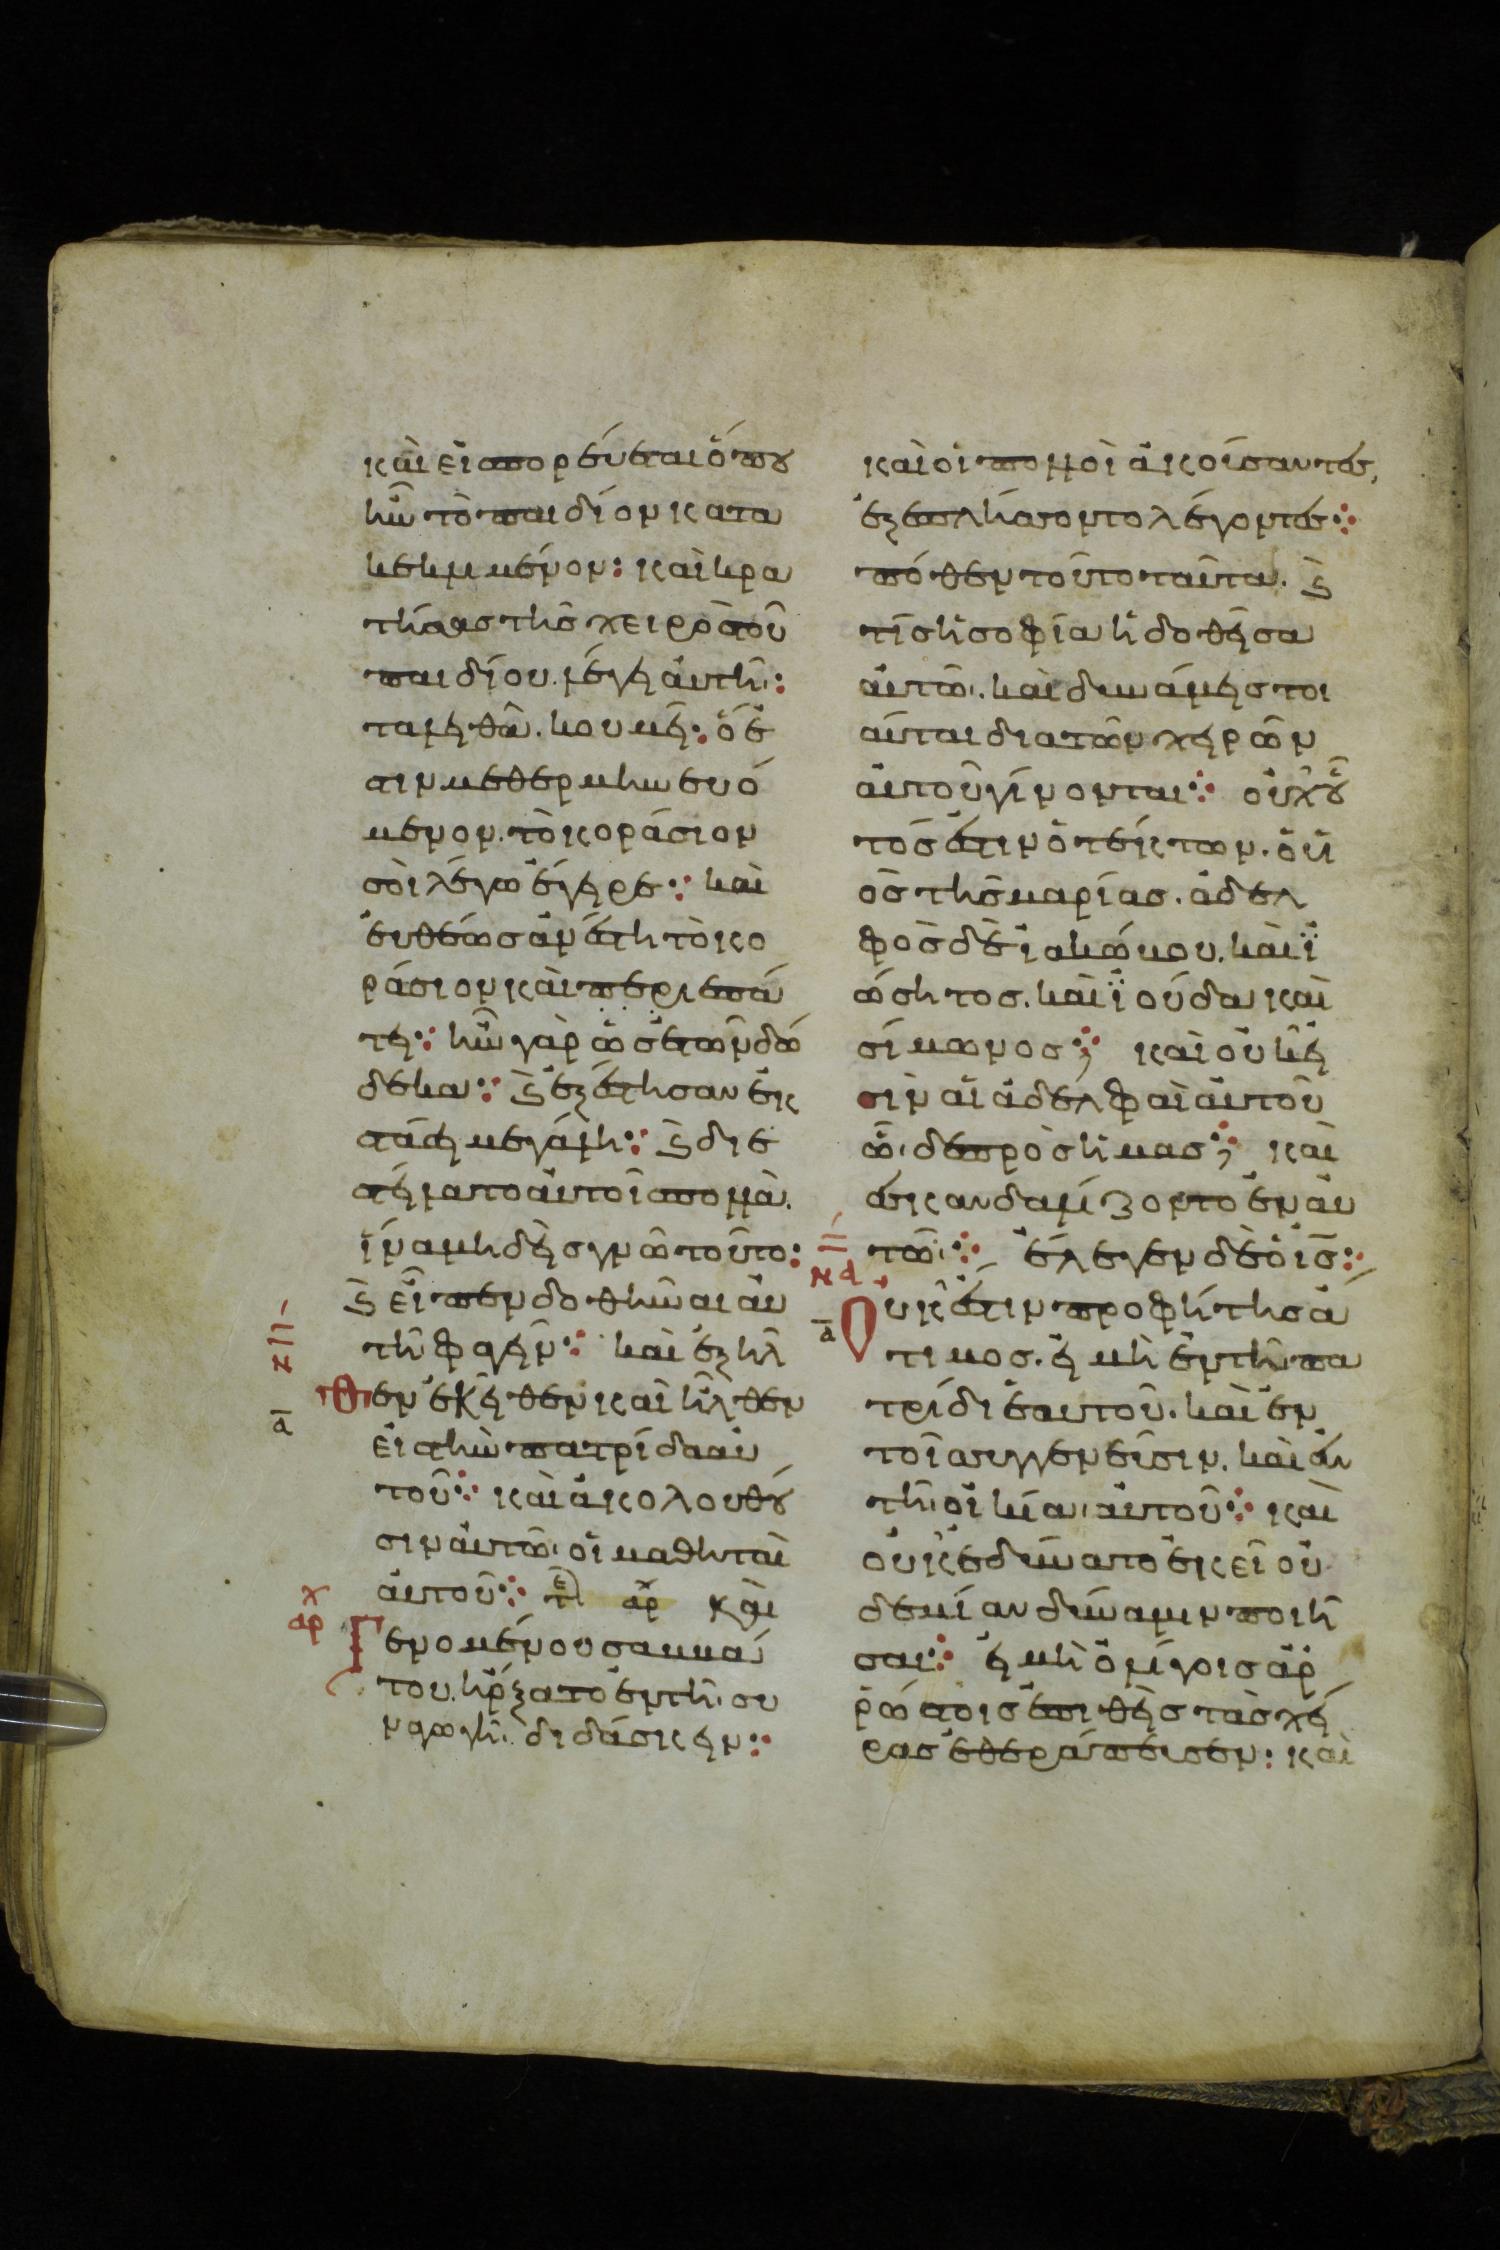 καὶ εἰσπορεύεται ὅπου
ἦν τὸ παιδίον κατα
κεκλιμμένον: καὶ κρα
τήσας τῆς χειρὸς τοῦ
παιδίου λέγει αὐτῆ:
ταλειθὰ. κουμεῖ: ὅ ἐ
στιν μεθερμηνευό
μενον. τὸ κοράσιον
σοὶ λέγω ἔγειρε: καὶ
εὐθέως ἀνέστη τὸ κο
ράσιον καὶ περιεπά
τει: ἦν γὰρ ὡς ἐτῶν δώ
δεκα: ϛ ἐξέστησαν ἐκ
στάσει μεγάλη: ϛ διε
στείλατο αὐτοῖς πολλὰ.
ἵνα μηδεὶς γνῶ τοῦτο:
ϛ εἶπεν δοθῆναι αὐ
τῆ φαγεῖν: καὶ ἐξῆλ
θεν ἐκεῖθεν καὶ ἦλθεν
εἰς τὴν πατρίδα αὐ
τοῦ: καὶ ἀκολουθοῦ
σιν αὐτῶ οἱ μαθηταὶ
αὐτοῦ: τε αρ καὶ
Γενομένου σαββά
του. ἤρξατο ἐν τῆ συ
ναγωγῆ. διδάσκειν:
καὶ οἱ πολλοὶ ἀκούσαντες,
ἐξεπλήσσοντο λέγοντες:
πόθεν τοῦτο ταῦτα. ϛ
τίς ἡ σοφία ἡ δοθεῖσα
αὐτῶ. καὶ δυνάμεις τοι
αῦται διὰ τῶν χειρῶν
αὐτοῦ γίνονται: οὐχ οὗ
τός ἐστιν ὁ τέκτων. ὁ υἱ
ὸς τῆς μαρίας. ἀδελ
φὸς δὲ ἰακώβου. καὶ ἰ
ωσῆτος. καὶ ἰούδα καὶ
σίμωνος; καὶ οὐκ εἰ
σὶν αἱ ἀδελφαὶ αὐτοῦ
ὧδε πρὸς ἡμας; καὶ
ἐσκανδαλίζοντο ἐν αὐ
τῶ: ἔλεγεν δὲ ὁ ις:
Οὐκ ἔστιν προφήτης ἄ
τιμος. εἰ μὴ ἐν τῆ πα
τρίδι ἑαυτοῦ. καὶ ἐν
τοῖς συγγενεῦσιν. καὶ ἐν
τῆ οἰκία αὐτοῦ: καὶ
οὐκ ἐδύνατο ἐκεῖ οὐ
δεμίαν δύναμιν ποιῆ
σαι: εἰ μὴ ὀλίγοις ἀρ
ρώστοις ἐπιθεὶς τὰς χεῖ
ρας ἐθεράπευσεν: καὶ